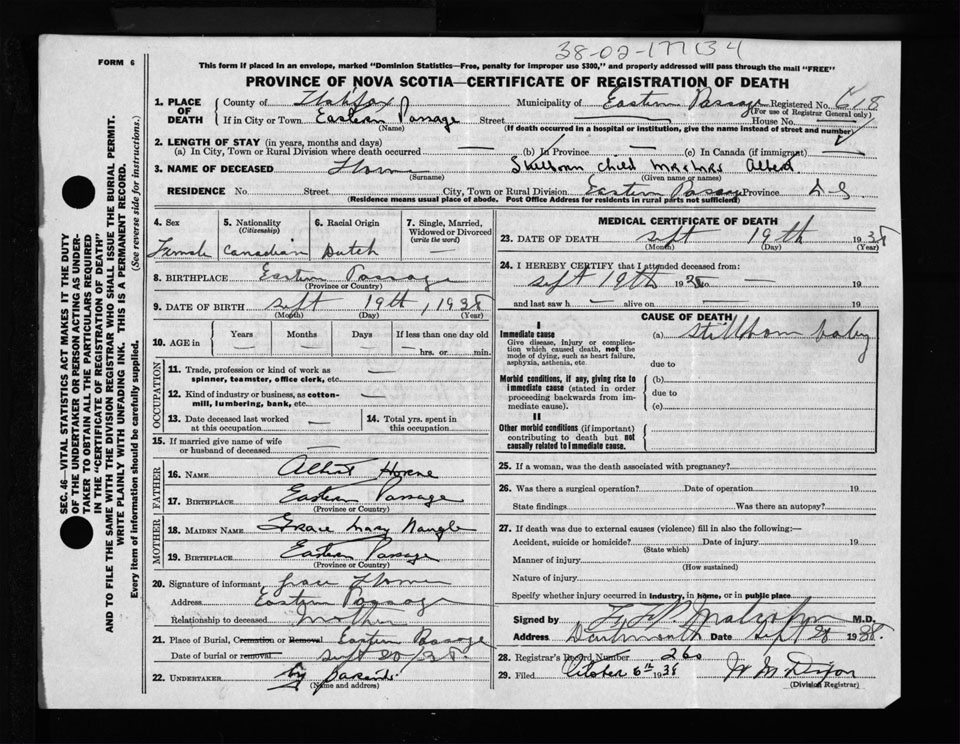 38-02-177134
FORM 6
This form if placed in an envelope, marked "Dominion Statistics—Free, penalty for improper use $300," and properly addressed will pass through the mail "FREE"
PROVINCE OF NOVA SCOTIA—CERTIFICATE OF REGISTRATION OF DEATH
1. PLACE OF DEATH
County of Halifax Municipality of Eastern Passage Registered No. 618
(For use of Registrar General only)
If in City or Town Eastern Passage Street House No.
(Name) (If death occurred in a hospital or institution, give the name instead of street and number)
2. LENGTH OF STAY (in years, months and days)
(a) In City, Town or Rural Division where death occurred — (b) In Province — (c) In Canada (if immigrant) —
3. NAME OF DECEASED Horne Stillborn child Mr & Mrs Albert
(Surname) (Given name or names)
RESIDENCE No. Street City, Town or Rural Division Eastern Passage Province N-S
(Residence means usual place of abode. Post Office Address for residents in rural parts not sufficient)
4. Sex
Female
5. Nationality
(Citizenship)
Canadian
6. Racial Origin
Dutch
7. Single, Married, Widowed or Divorced
(write the word)
8. BIRTHPLACE Eastern Passage
(Province or Country)
9. DATE OF BIRTH Sept 19th, 1938
(Month) (Day) (Year)
10. AGE in Years Months Days If less than one day old
— — — — hrs. or min.
OCCUPATION
11. Trade, profession or kind of work as spinner, teamster, office clerk, etc. —
12. Kind of industry or business, as cotton-mill, lumbering, bank, etc. —
13. Date deceased last worked at this occupation —
14. Total yrs. spent in this occupation
15. If married give name of wife or husband of deceased —
FATHER
16. NAME Albert Horne
17. BIRTHPLACE Eastern Passage
(Province or Country)
MOTHER
18. MAIDEN NAME Grace Mary Naugle
19. BIRTHPLACE Eastern Passage
(Province or Country)
20. Signature of informant Grace Horne
Address Eastern Passage
Relationship to deceased Mother
21. Place of Burial, Cremation or Removal Eastern Passage
Date of burial or removal Sept 20/38
22. UNDERTAKER by parents
(Name and address)
MEDICAL CERTIFICATE OF DEATH
23. DATE OF DEATH Sept 19th 1938
(Month) (Day) (Year)
24. I HEREBY CERTIFY that I attended deceased from:
Sept 19th 1938 to — 19
and last saw h — alive on — 19
CAUSE OF DEATH
I
Immediate cause
Give disease, injury or complication which caused death, not the mode of dying, such as heart failure, asphyxia, asthenia, etc.
(a) stillborn baby
due to
Morbid conditions, if any, giving rise to immediate cause (stated in order proceeding backwards from immediate cause).
(b)
due to
(c)
II
Other morbid conditions (if important) contributing to death but not causally related to immediate cause.
25. If a woman, was the death associated with pregnancy?
26. Was there a surgical operation? Date of operation 19
State findings Was there an autopsy?
27. If death was due to external causes (violence) fill in also the following:—
Accident, suicide or homicide? Date of injury 19
(State which)
Manner of injury
(How sustained)
Nature of injury
Specify whether injury occurred in industry, in home, or in public place
Signed by M.D.
Address Dartmouth Date Sept 20 1938.
28. Registrar's Record Number 260
29. Filed October 6th 1938 W M Dixon
(Division Registrar)
SEC. 46—VITAL STATISTICS ACT MAKES IT THE DUTY
OF THE UNDERTAKER OR PERSON ACTING AS UNDER-
TAKER TO OBTAIN ALL THE PARTICULARS REQUIRED
IN THE "CERTIFICATE OF REGISTRATION OF DEATH"
AND TO FILE THE SAME WITH THE DIVISION REGISTRAR WHO SHALL ISSUE THE BURIAL PERMIT.
WRITE PLAINLY WITH UNFADING INK. THIS IS A PERMANENT RECORD.
Every item of information should be carefully supplied. (See reverse side for instructions.)